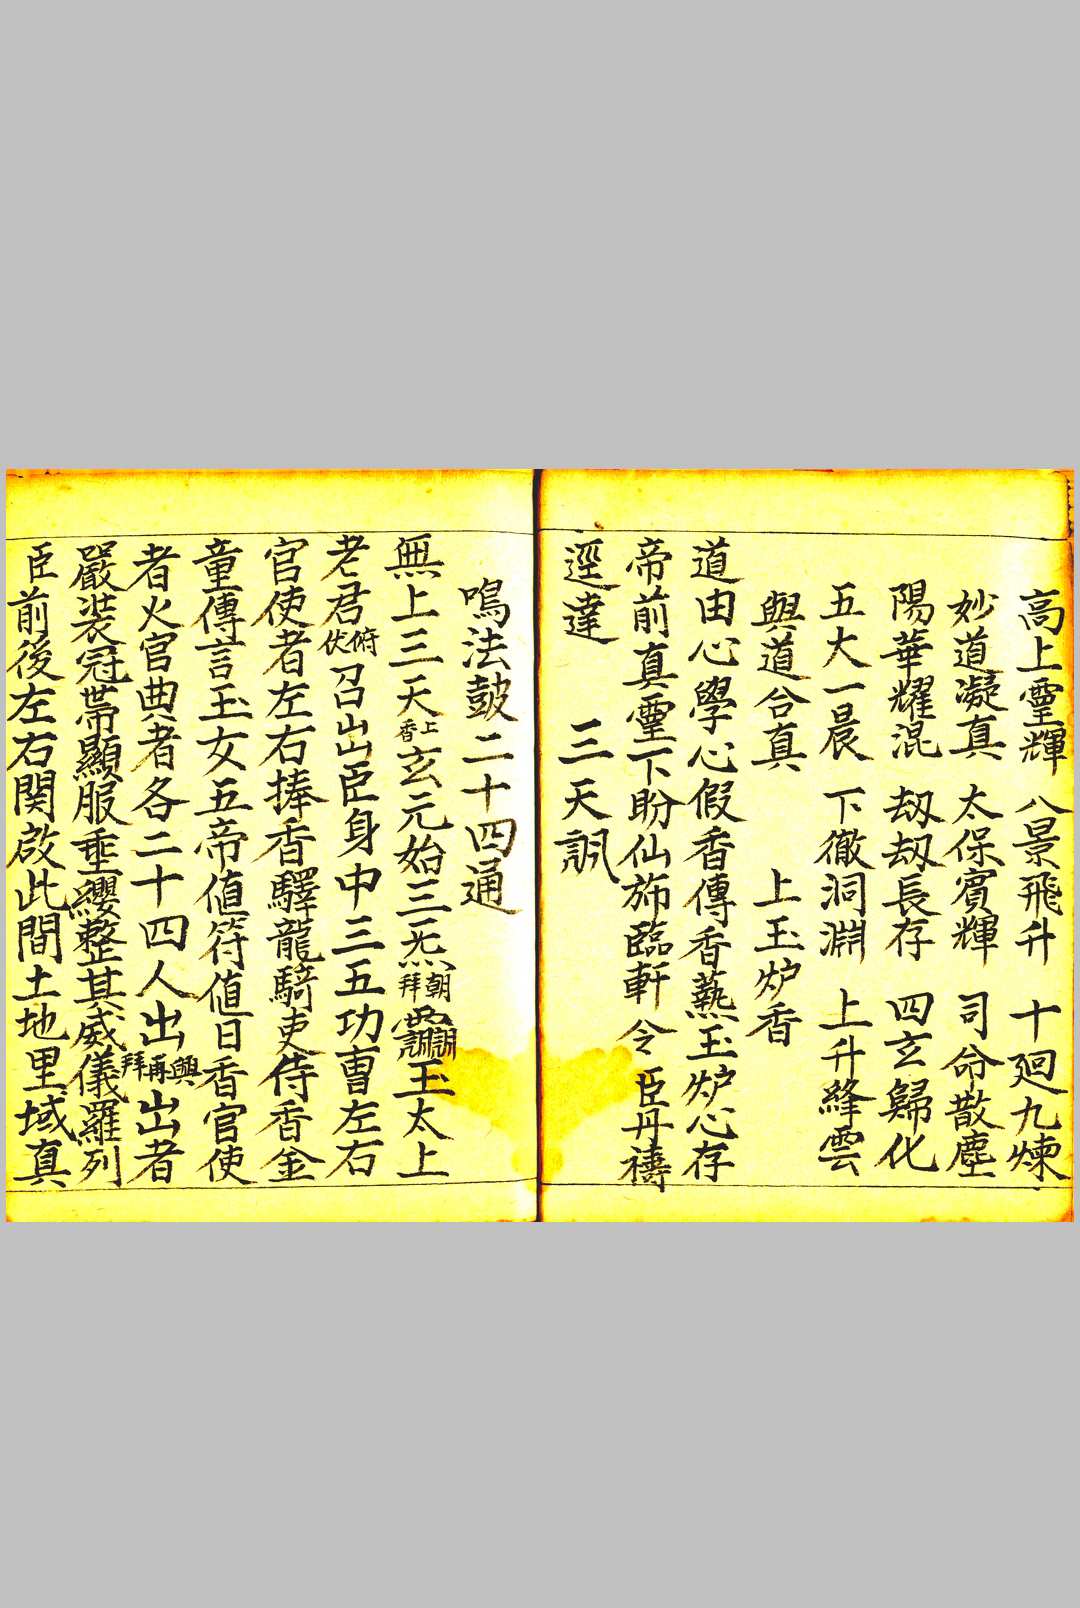 高上霊輝 八景飛升 十廻九煉
妙道凝真 太保賓輝 司命散塵
陽華耀混 刼刼長存 四玄歸化
五大一晨 下徹洞淵 上升絳雲
與道合真 上玉炉香
道由心學心假香傳香爇玉炉心存
帝前真霊下盼仙斾臨軒令臣丹禱
逕達 三天 訊
鳴法鼓二十四通
無上三天上香玄元始三炁朝拜 玉太上
老君俯伏召出臣身中三五功曹左右
官使者左右捧香驛龍騎吏侍香金
童傳言玉女五帝値符値日香官使
者火官典者各二十四人出興再拜出者
嚴裝冠帶顯服垂纓整其威儀羅列
臣前後左右関啟此間土地里域真